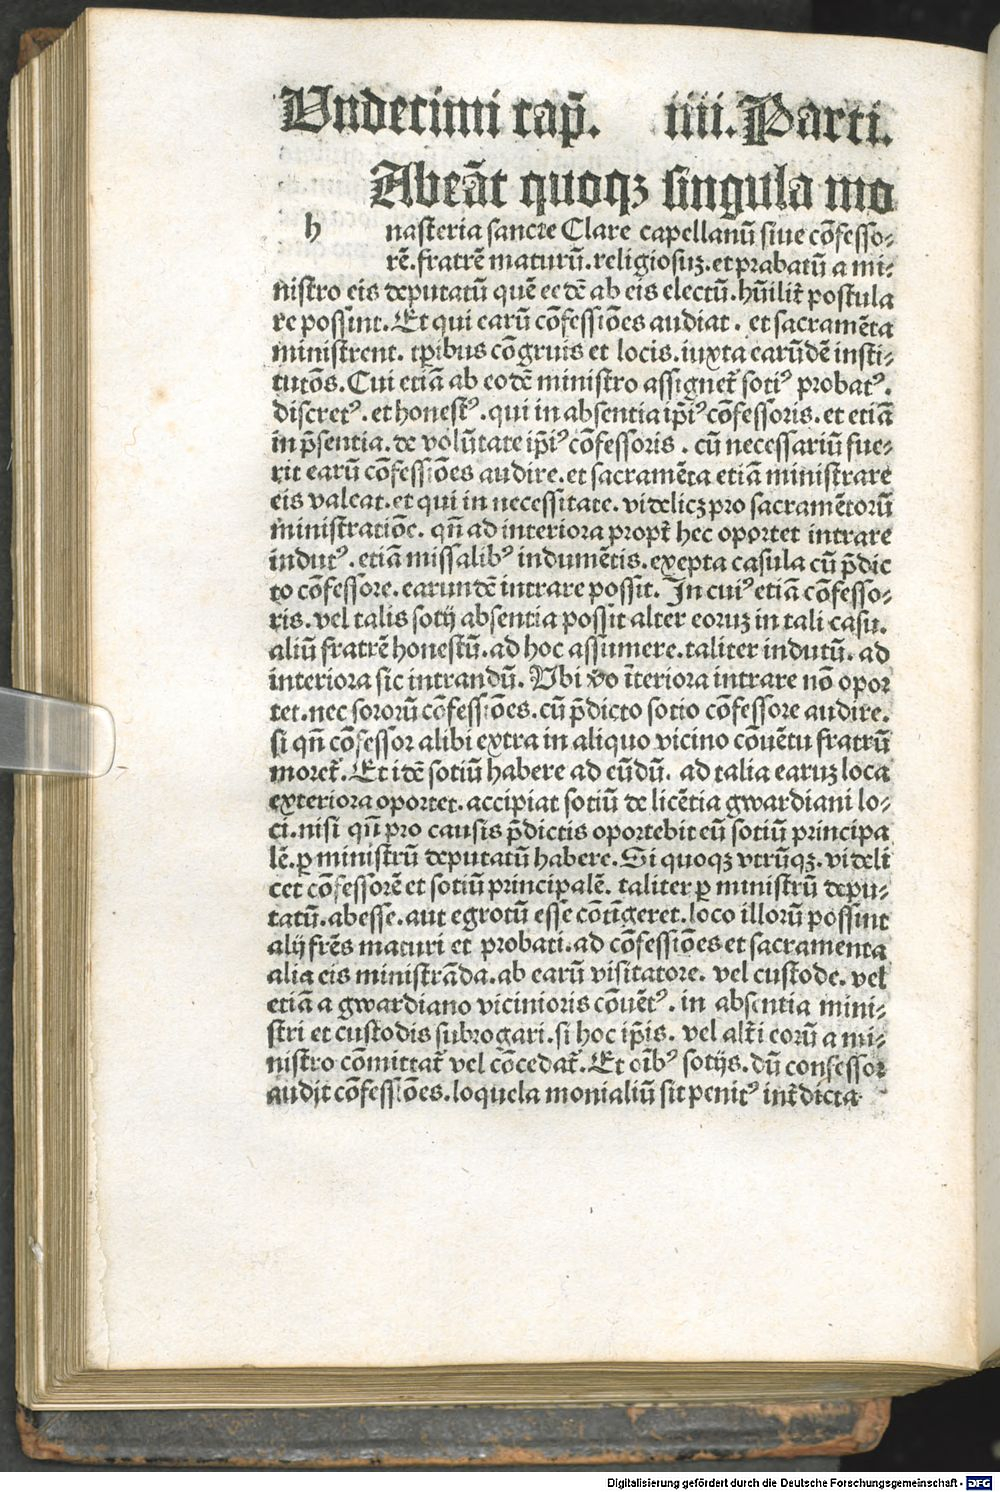 Undecimi cap̄. iiii. Parti.
Abeāt quoqꝫ singula mo
h nasteria sancte Clare capellanū siue cōfesso⸗
rē. fratrē maturū. religiosuꝫ. et prabatū a mi⸗
nistro eis deputatū quē eedē ab eis electū. hūilit᷑ postula
re possint. Et qui earū cōfessiōes audiat. et sacramēta
ministrent. tp̄ibus cōgruis et locis. iuxta earūdē insti⸗
tutōs. Cui etiā ab eodē ministro assignet᷑ sotiꝰ probatꝰ.
discretꝰ. et honestꝰ. qui in absentia ip̄iꝰ cōfessoris. et etiā
in p̄sentia. de volūtate ip̄iꝰ cōfessoris. cū necessariū fue⸗
rit earū cōfessiōes audire. et sacramēta etiā ministrare
eis valeat. et qui in necessitate. videlicꝫ pro sacramētorū
ministratiōe. qn̄ ad interiora propt᷑ hec oportet intrare
indutꝰ. etiā missalibꝰ indumētis. exepta casula cū p̄dic
to cōfessore. earundē intrare possit. In cuiꝰ etiā cōfesso⸗
ris. vel talis sotij absentia possit alter eoruꝫ in tali casu.
aliū fratrē honestū. ad hoc assumere. taliter indutū. ad
interiora sic intrandū. Vbi v̄o īteriora intrare nō opor
tet. nec sororū cōfessiōes. cū p̄dicto sotio cōfessore audire.
si qn̄ cōfessor alibi extra in aliquo vicino cōuētu fratrū
moret᷑. Et idē sotiū habere ad eūdū. ad talia earuꝫ loca
exteriora oportet. accipiat sotiū de licētia gwardiani lo⸗
ci. nisi qn̄ pro causis p̄dictis oportebit eū sotiū principa
lē. ꝑ ministrū deputatū habere. Si quoqꝫ vtrūqꝫ. videli
cet cōfessorē et sotiū principalē. taliter ꝑ ministrū depu⸗
tatū. abesse. aut egrotū esse cōtīgeret. loco illorū possint
alij frēs maturi et probati. ad cōfessiōes et sacramenta
alia eis ministrāda. ab earū visitatore. vel custode. vel
etiā a gwardiano vicinioris cōuētꝰ. in absentia mini⸗
stri et custodis subrogari. si hoc ip̄is. vel alt᷑i eorū a mi⸗
nistro cōmittat᷑ vel cōcedat᷑. Et oībꝰ sotijs. dū confessor
audit cōfessiōes. loquela monialiū sit penitꝰ int᷑dicta
Digitalisierung gefördert durch die Deutsche Forschungsgemeinschaft - DFG